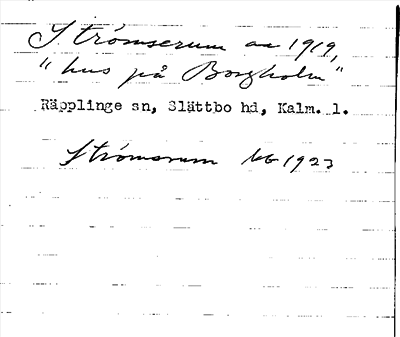 Strömserum an 1919,
"hus på Borgholm"
Räpplinge sn, Slättbo hd, Kalm. l.
Strömsrum 1923